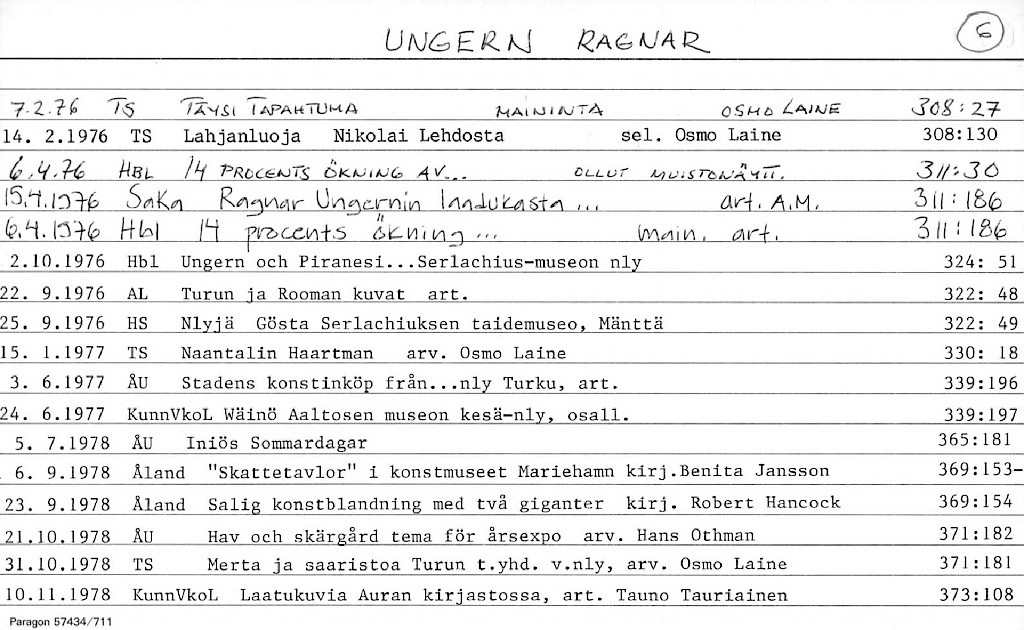 UNGERN RAGNAR 6
7.2.76 TS TÄYSI TAPAHTUMA MAININTA OSMO LAINE 308:27
14. 2.1976 TS Lahjanluoja Nikolai Lehdosta sel. Osmo Laine 308:130
6.4.76 HBL 14 PROCENTS ÖKNING AV... OLLUT MUISTONÄYTT. 311:30
15.4.1976 SaKa Ragnar Ungernin laadukasta ... art. A.M. 311:186
6.4.1976 Hbl 14 procents ökning ... main. art. 311:186
2.10.1976 Hbl Ungern och Piranesi...Serlachius-museon nly 324: 51
22. 9.1976 AL Turun ja Rooman kuvat art. 322: 48
25. 9.1976 HS Nlyjä Gösta Serlachiuksen taidemuseo, Mänttä 322: 49
15. 1.1977 TS Naantalin Haartman arv. Osmo Laine 330: 18
3. 6.1977 ÅU Stadens konstinköp från...nly Turku, art. 339:196
24. 6.1977 KunnVkoL Wäinö Aaltosen museon kesä-nly, osall. 339:197
5. 7.1978 ÅU Iniös Sommardagar 365:181
6. 9.1978 Åland "Skattetavlor" i konstmuseet Mariehamn kirj.Benita Jansson 369:153-
23. 9.1978 Åland Salig konstblandning med två giganter kirj. Robert Hancock 369:154
21.10.1978 ÅU Hav och skärgård tema för årsexpo arv. Hans Othman 371:182
31.10.1978 TS Merta ja saaristoa Turun t.yhd. v.nly, arv. Osmo Laine 371:181
10.11.1978 KunnVkoL Laatukuvia Auran kirjastossa, art. Tauno Tauriainen 373:108
Paragon 57434/711